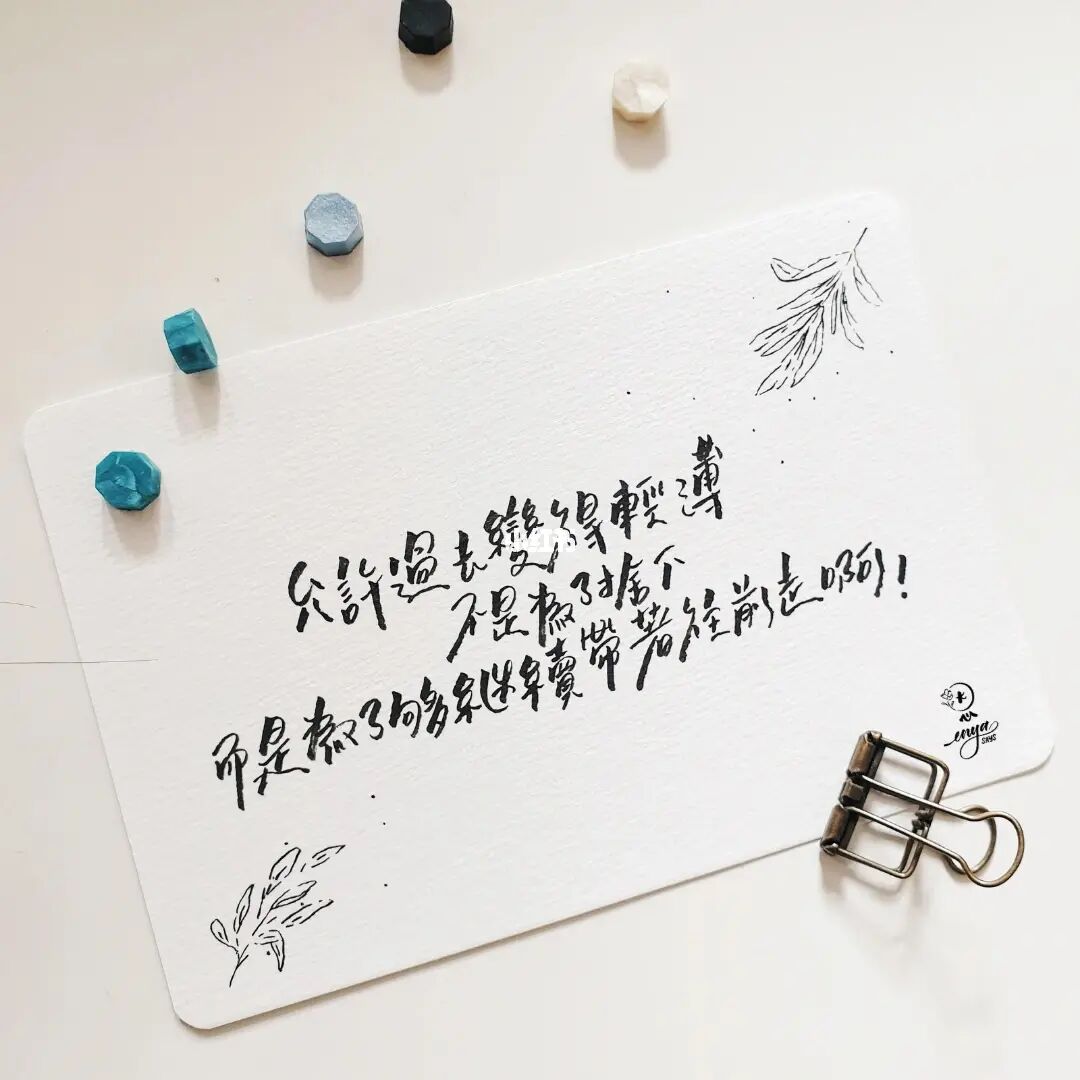 允許過去變得輕薄
不是為了捨下
而是為了能夠繼續帶著往前走啊!
enya
SAYS